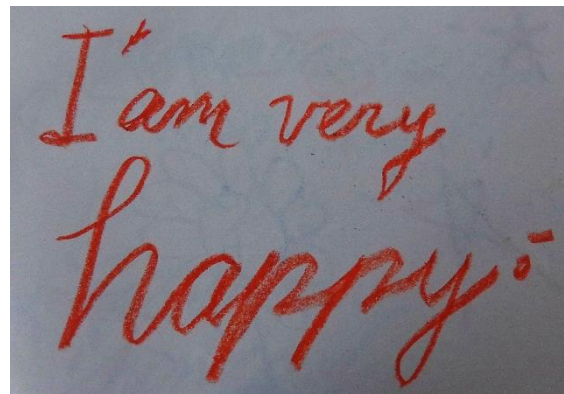 I'am very
happy: